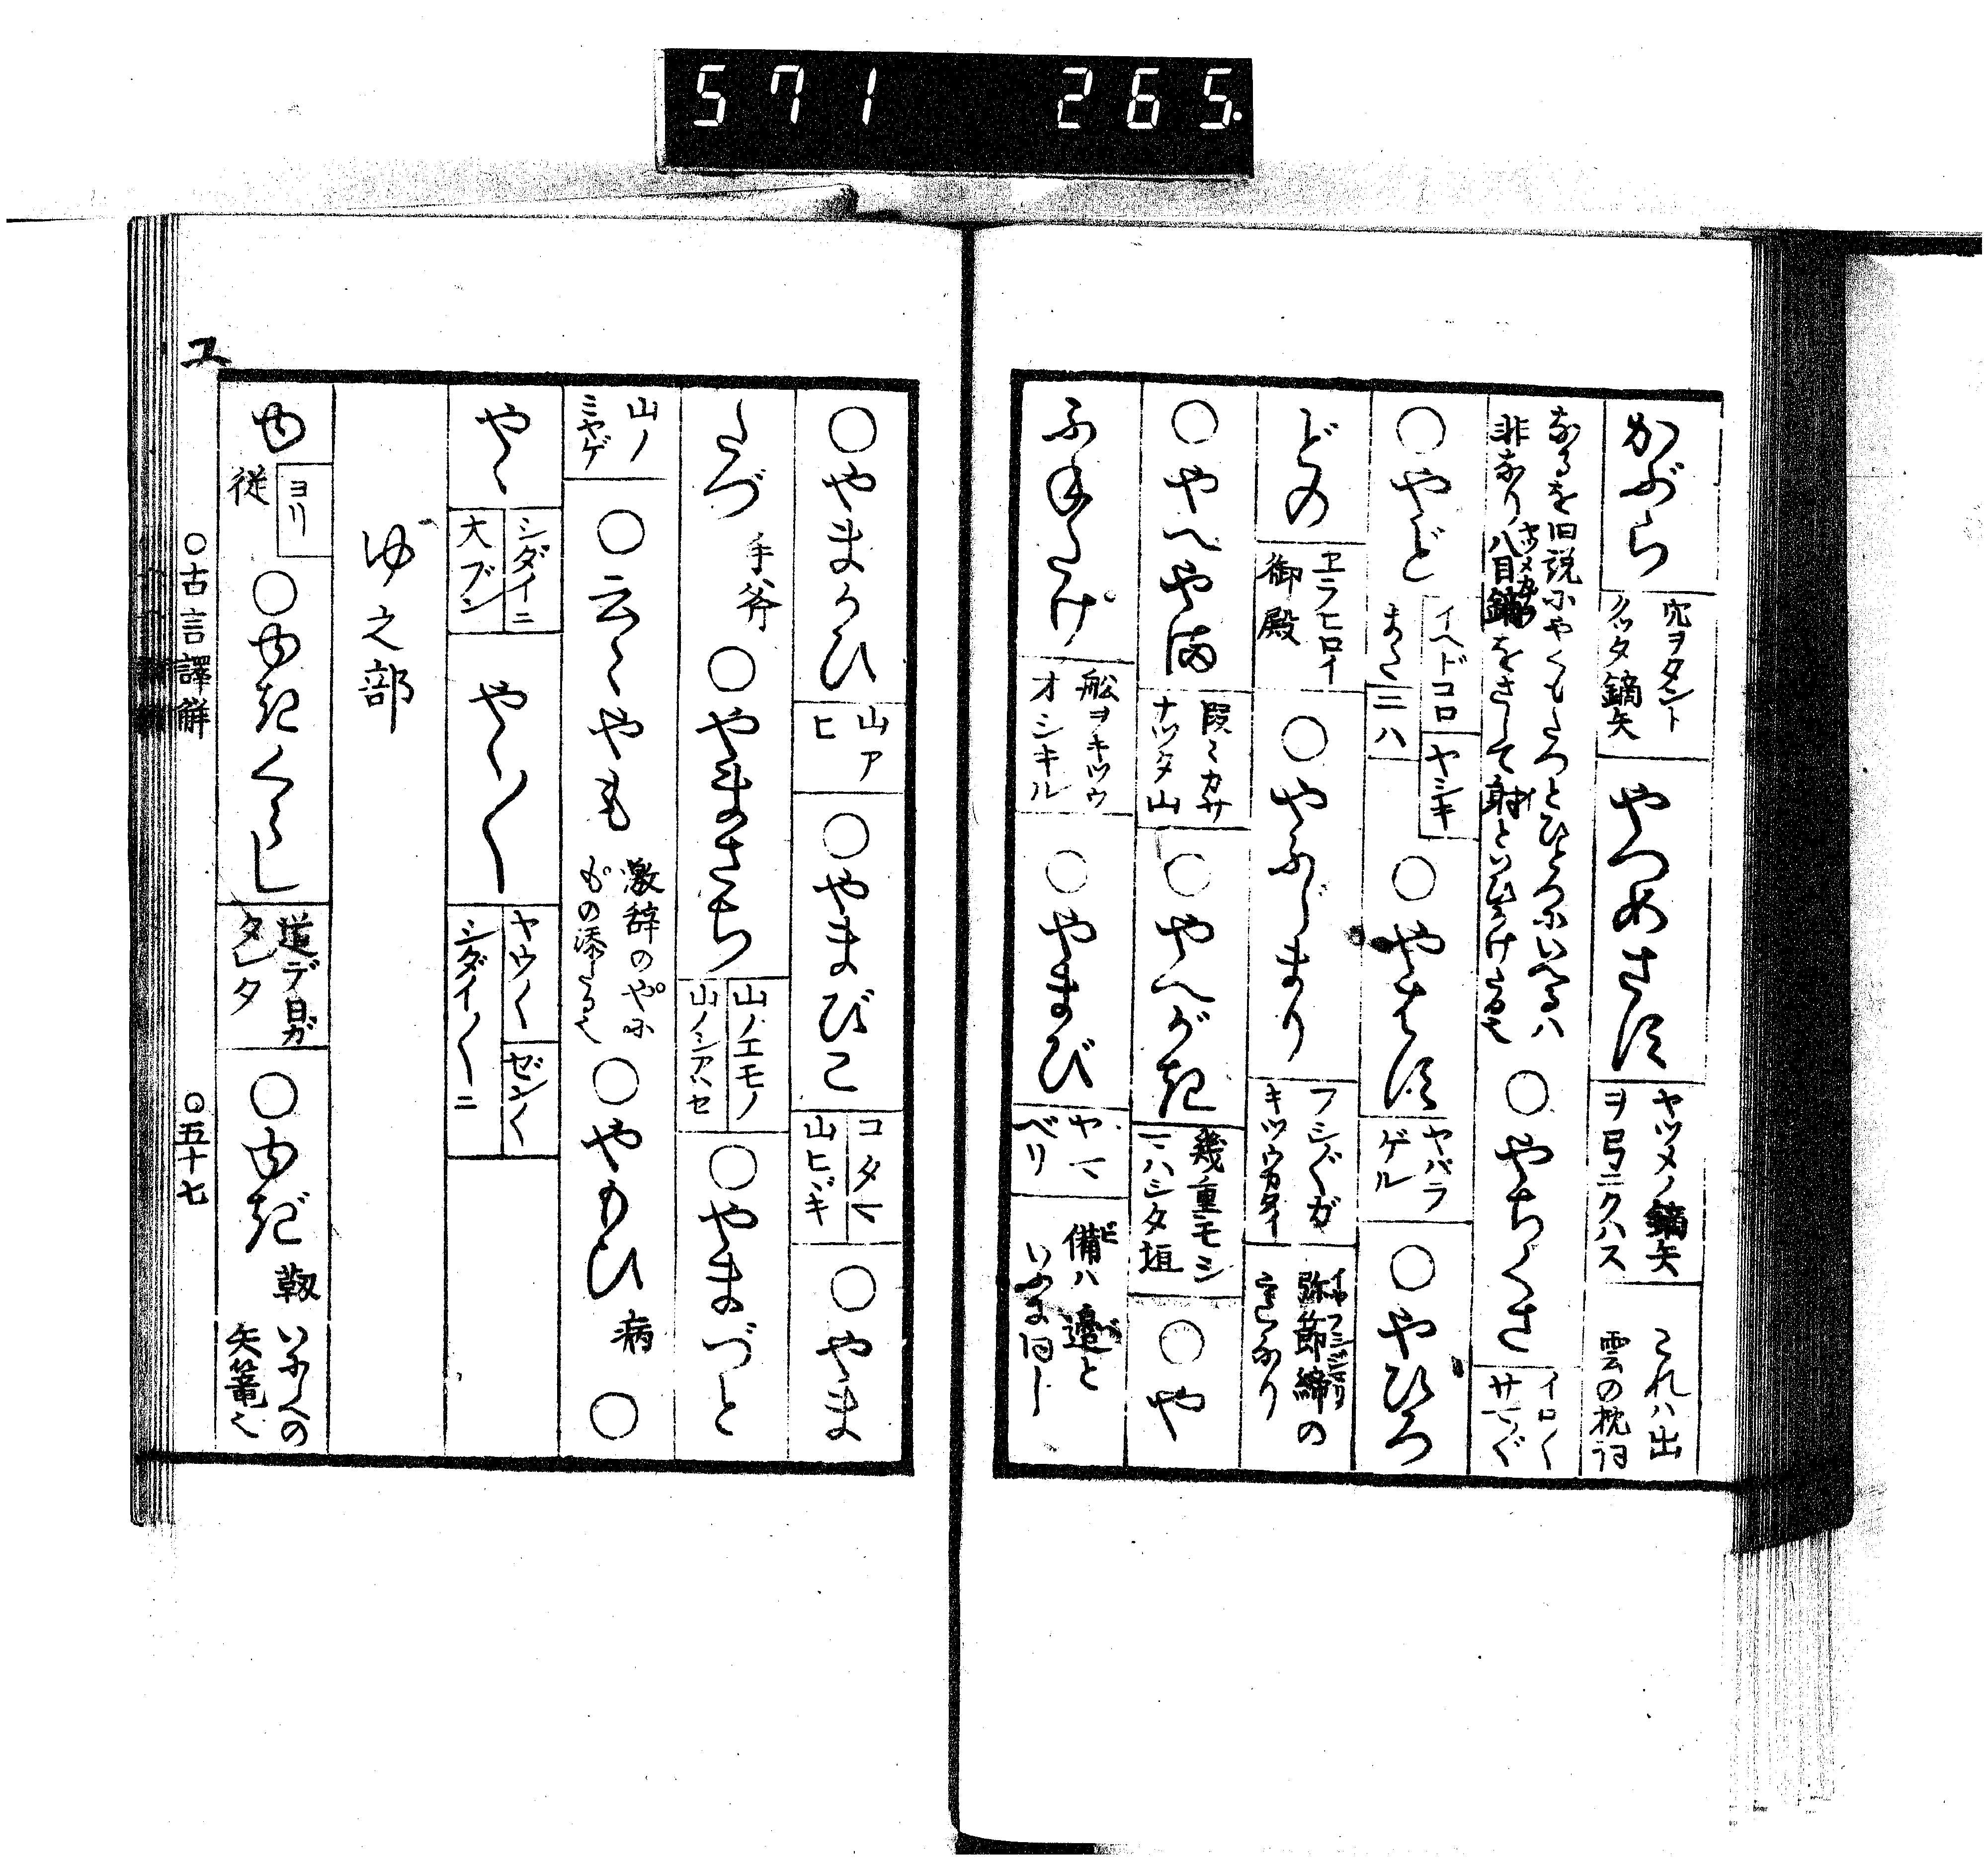 571 265
かぶら 穴ヲタント クツタ鏑矢 やつめさす ヤツメノ鏑矢 ヲ弓ニクハス これハ出 雲の枕詞
なるを旧説にやくもたつとひとつにいへるハ
非なり八目鏑をさして射といひかけたる也 ○やちくさ イロ〱 サマ〲
○やど イヘドコロ ヤシキ または ニハ ○やはす ヤハラ ゲル ○やひろ
どの ヱラヒロイ 御殿 ○やふじまり フシ〲ガ キツウカタイ 弥節締の 意なり
○やへやま 段〻カサ ナツタ山 ○やへがき 幾重モシ マハシタ垣 ○や
ふねたけ 舩ヲキツウ オシキル ○やまび ヤマ ベリ 備ハ邊と いふに同し
○やまかひ 山ア ヒ ○やまびこ コタマ 山ヒヾキ ○やま
たづ 手斧 ○やまさち 山ノエモノ 山ノシアハセ ○やまづと
山ノ ミヤゲ ○云〻やも 激辞のやに もの添たる也 ○やもひ 病 ○
やゝ シダイニ 大ブン やゝ〱 ヤウ〱 ゼン〱 シダイ〱ニ
ゆ之部
ゆ ヨリ 従 ○ゆきくらし 道デ日ガ クレタ ○ゆぎ 靫 いにしへの 矢篭也
ユ
○古言譯解 ○五十七